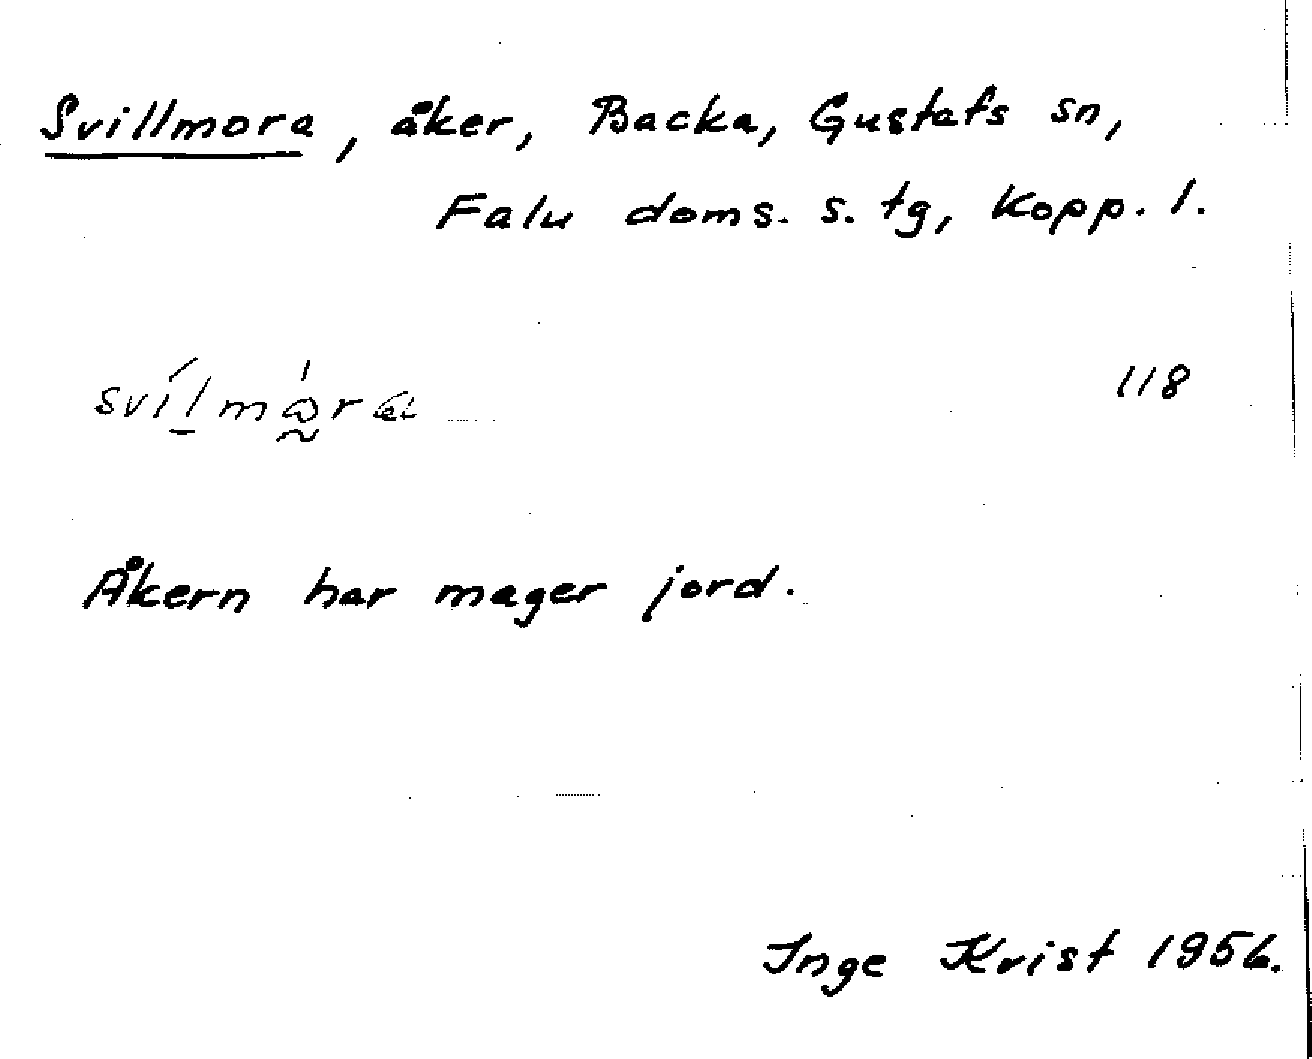 Svillmora, åker, Backa, Gustafs sn,
Falu doms. s. tg, Kopp. l.
118
Åkern har mager jord.
Inge Krist 1956.